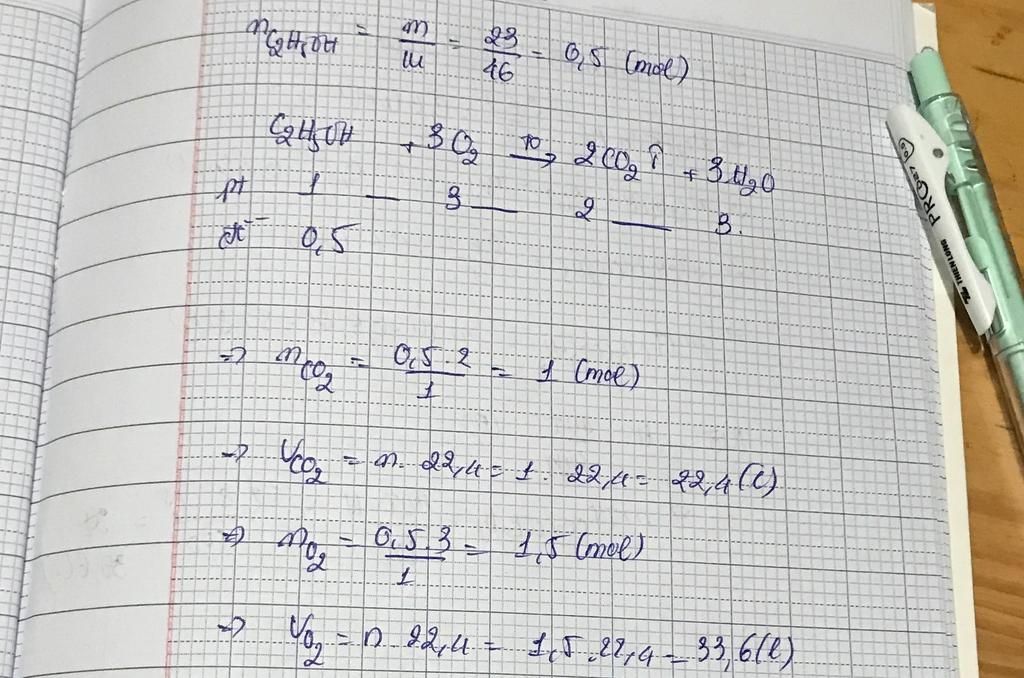 nC2H5OH = m/M = 23/46 = 0,5 (mol)
C2H5OH + 3O2 -to-> 2CO2↑ + 3H2O
pt 1 — 3 — 2 — 3.
đt 0,5
=> nCO2 = 0,5.2/1 = 1 (mol)
=> VCO2 = n. 22,4 = 1. 22,4 = 22,4 (l)
=> nO2 = 0,5.3/1 = 1,5 (mol)
=> VO2 = n. 22,4 = 1,5.22,4 = 33,6(l)
THIENLONG